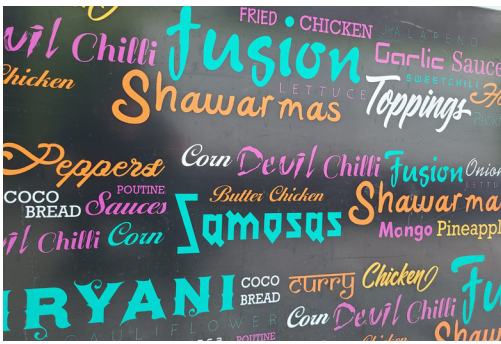 FRIED CHICKEN
JALAPENO
Devil Chilli
Fusion
Garlic Sauce
SWEETCHILI
Chicken
Shawarmas
LETTUCE
Toppings
Peppers
Corn
Devil Chilli
Fusion
Onion
COCO
BREAD
POUTINE
Sauces
Butter Chicken
Shawarma
Chilli
Corn
Samosas
Mango
Pineapple
IRYANI
COCO
BREAD
curry
Chicken
Fu
CAULIFLOWER
Corn
Devil Chilli
POUTINE
Chicken
Shaw